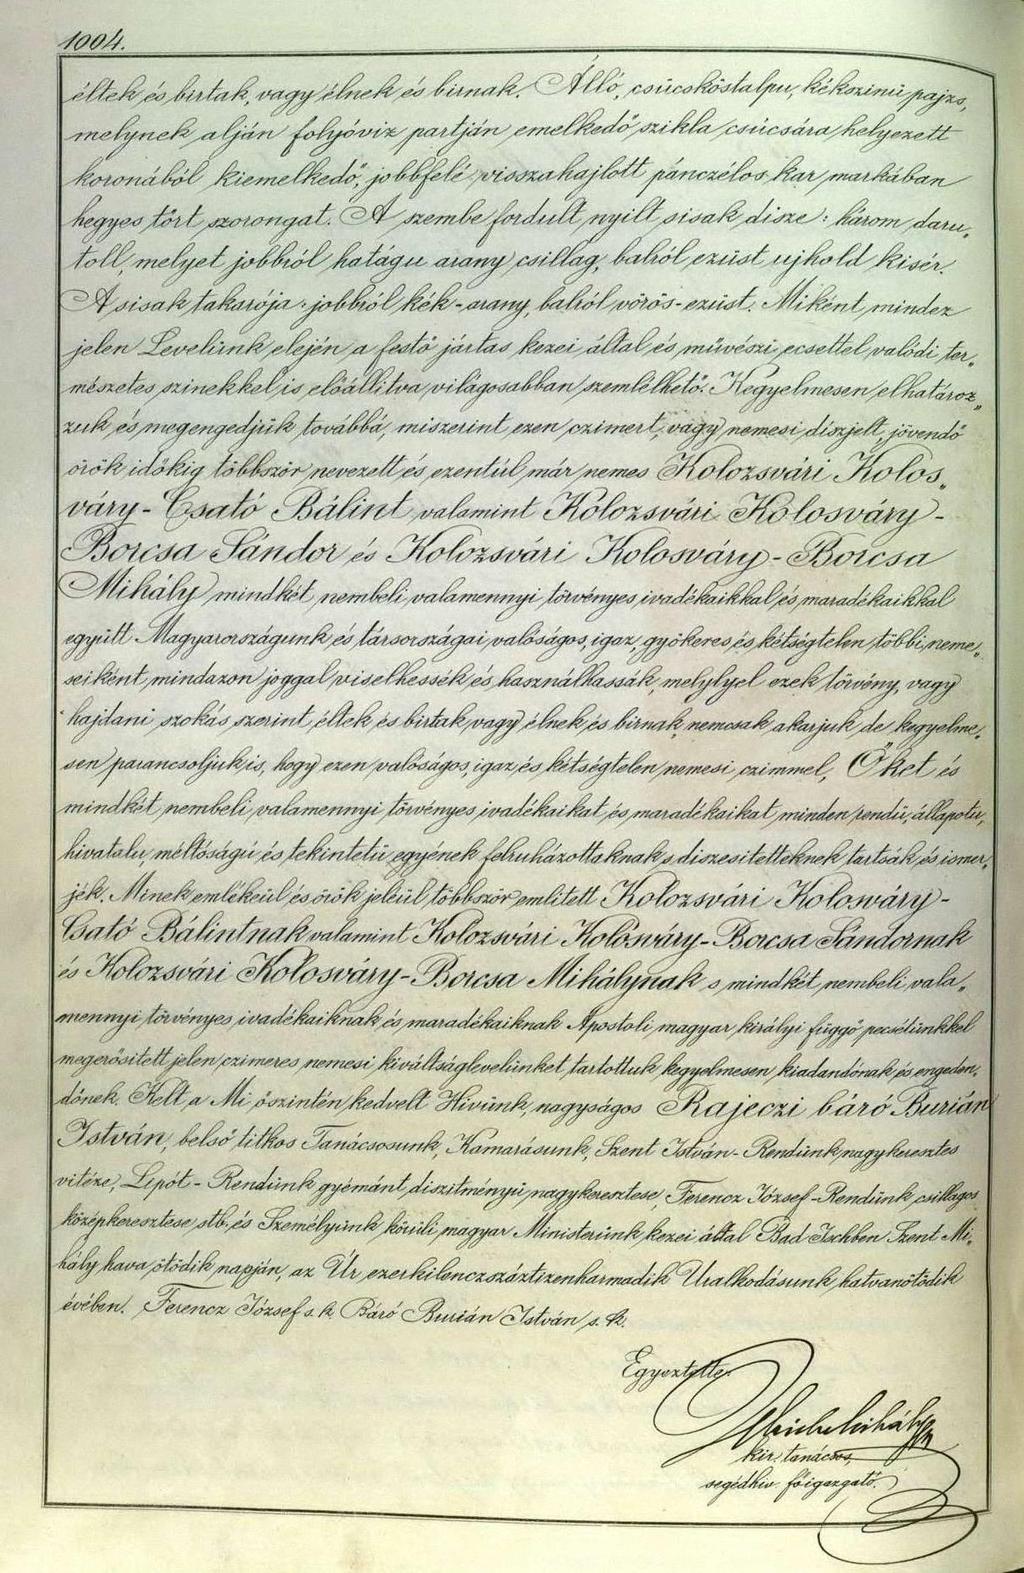 1004.
éltek és birtak, vagy élnek és birnak. Álló, csücsköstalpu, kékszinü pajzs,
melynek alján folyóviz partján emelkedő szikla csúcsára helyezett
koronából kiemelkedő, jobbfelé visszahajlott pánczélos kar markában
hegyes tőrt szorongat. A szembe fordult nyilt sisak disze: három daru„
toll, melyet jobbról hatágu arany csillag, balról ezüst ujhold kisér.
A sisak takarója: jobbról kék-arany, balról vörös-ezüst. Miként mindez
jelen Levelünk elején a festő jártas kezei által és müvészi ecsettel valódi ter„
mészetes szinekkel is előállitva világosabban szemlélhető. Kegyelmesen elhatároz„
zuk és megengedjük továbbá, miszerint ezen czimert, vagy nemesi diszjelt, jövendő
örök időkig többször nevezett és ezentúl már nemes Kolozsvári Kolos„
váry-Csató Bálint valamint Kolozsvári Kolosváry-
Borcsa Sándor és Kolozsvári Kolosváry-Borcsa
Mihály mindkét nembeli valamennyi törvényes ivadékaikkal és maradékaikkal
együtt Magyarországunk és társországai valóságos, igaz, gyökeres és kétségtelen többi neme„
seiként mindazon joggal viselhessék és használhassák, melylyel ezek törvény, vagy
hajdani szokás szerint éltek és birtak vagy élnek és birnak, nemcsak akarjuk de kegyelme„
sen parancsoljuk is, hogy ezen valóságos, igaz és kétségtelen nemesi czimmel, Őket és
mindkét nembeli valamennyi törvényes ivadékaikat és maradékaikat minden rendü, állapotu,
hivatalu, méltóságú és tekintetü egyének felruházottaknak s diszesitetteknek tartsák és ismer„
jék. Minek emlékeül és örök jeléül többször emlitett Kolozsvári Kolosváry-
Csató Bálintnak valamint Kolozsvári Kolosváry-Borcsa Sándornak
és Kolozsvári Kolosváry-Borcsa Mihálynak s mindkét nembeli vala„
mennyi törvényes ivadékaiknak és maradékaiknak Apostoli magyar királyi függő pecsétünkkel
megerősitett jelen czimeres nemesi kiváltságlevelünket tartottuk kegyelmesen kiadandónak és engeden„
dőnek. Kelt a Mi őszintén kedvelt Hivünk, nagyságos Rajeczi báró Burián
István, belső titkos Tanácsosunk, Kamarásunk, Szent István-Rendünk nagykeresztes
vitéze, Lipót-Rendünk gyémánt diszitményü nagykeresztese, Ferencz József-Rendünk csillagos
középkeresztese stb. és Személyünk körüli magyar Ministerünk kezei által Bad Ischben Szent Mi„
hály hava ötödik napján, az Úr ezerkilenczszáztizenharmadik Uralkodásunk hatvanötödik
évében. Ferencz József s. k. Báró Burián István s. k.
Egyeztette:
kir. tanácsos,
segédhiv. főigazgató.